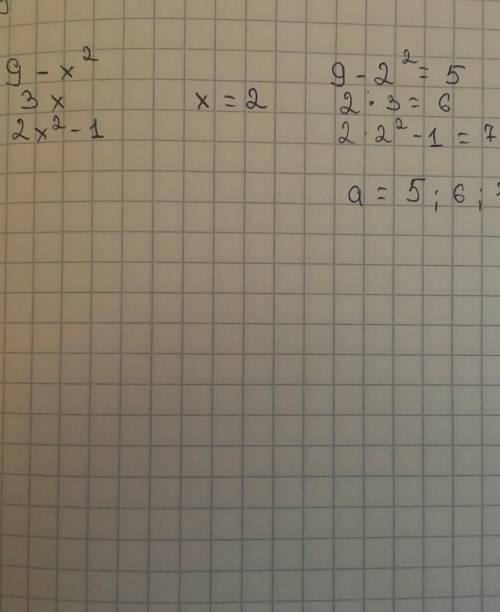 9 - x²
3x
2x² - 1
x = 2
9 - 2² = 5
2 · 3 = 6
2 · 2² - 1 = 7
a = 5 ; 6 ;